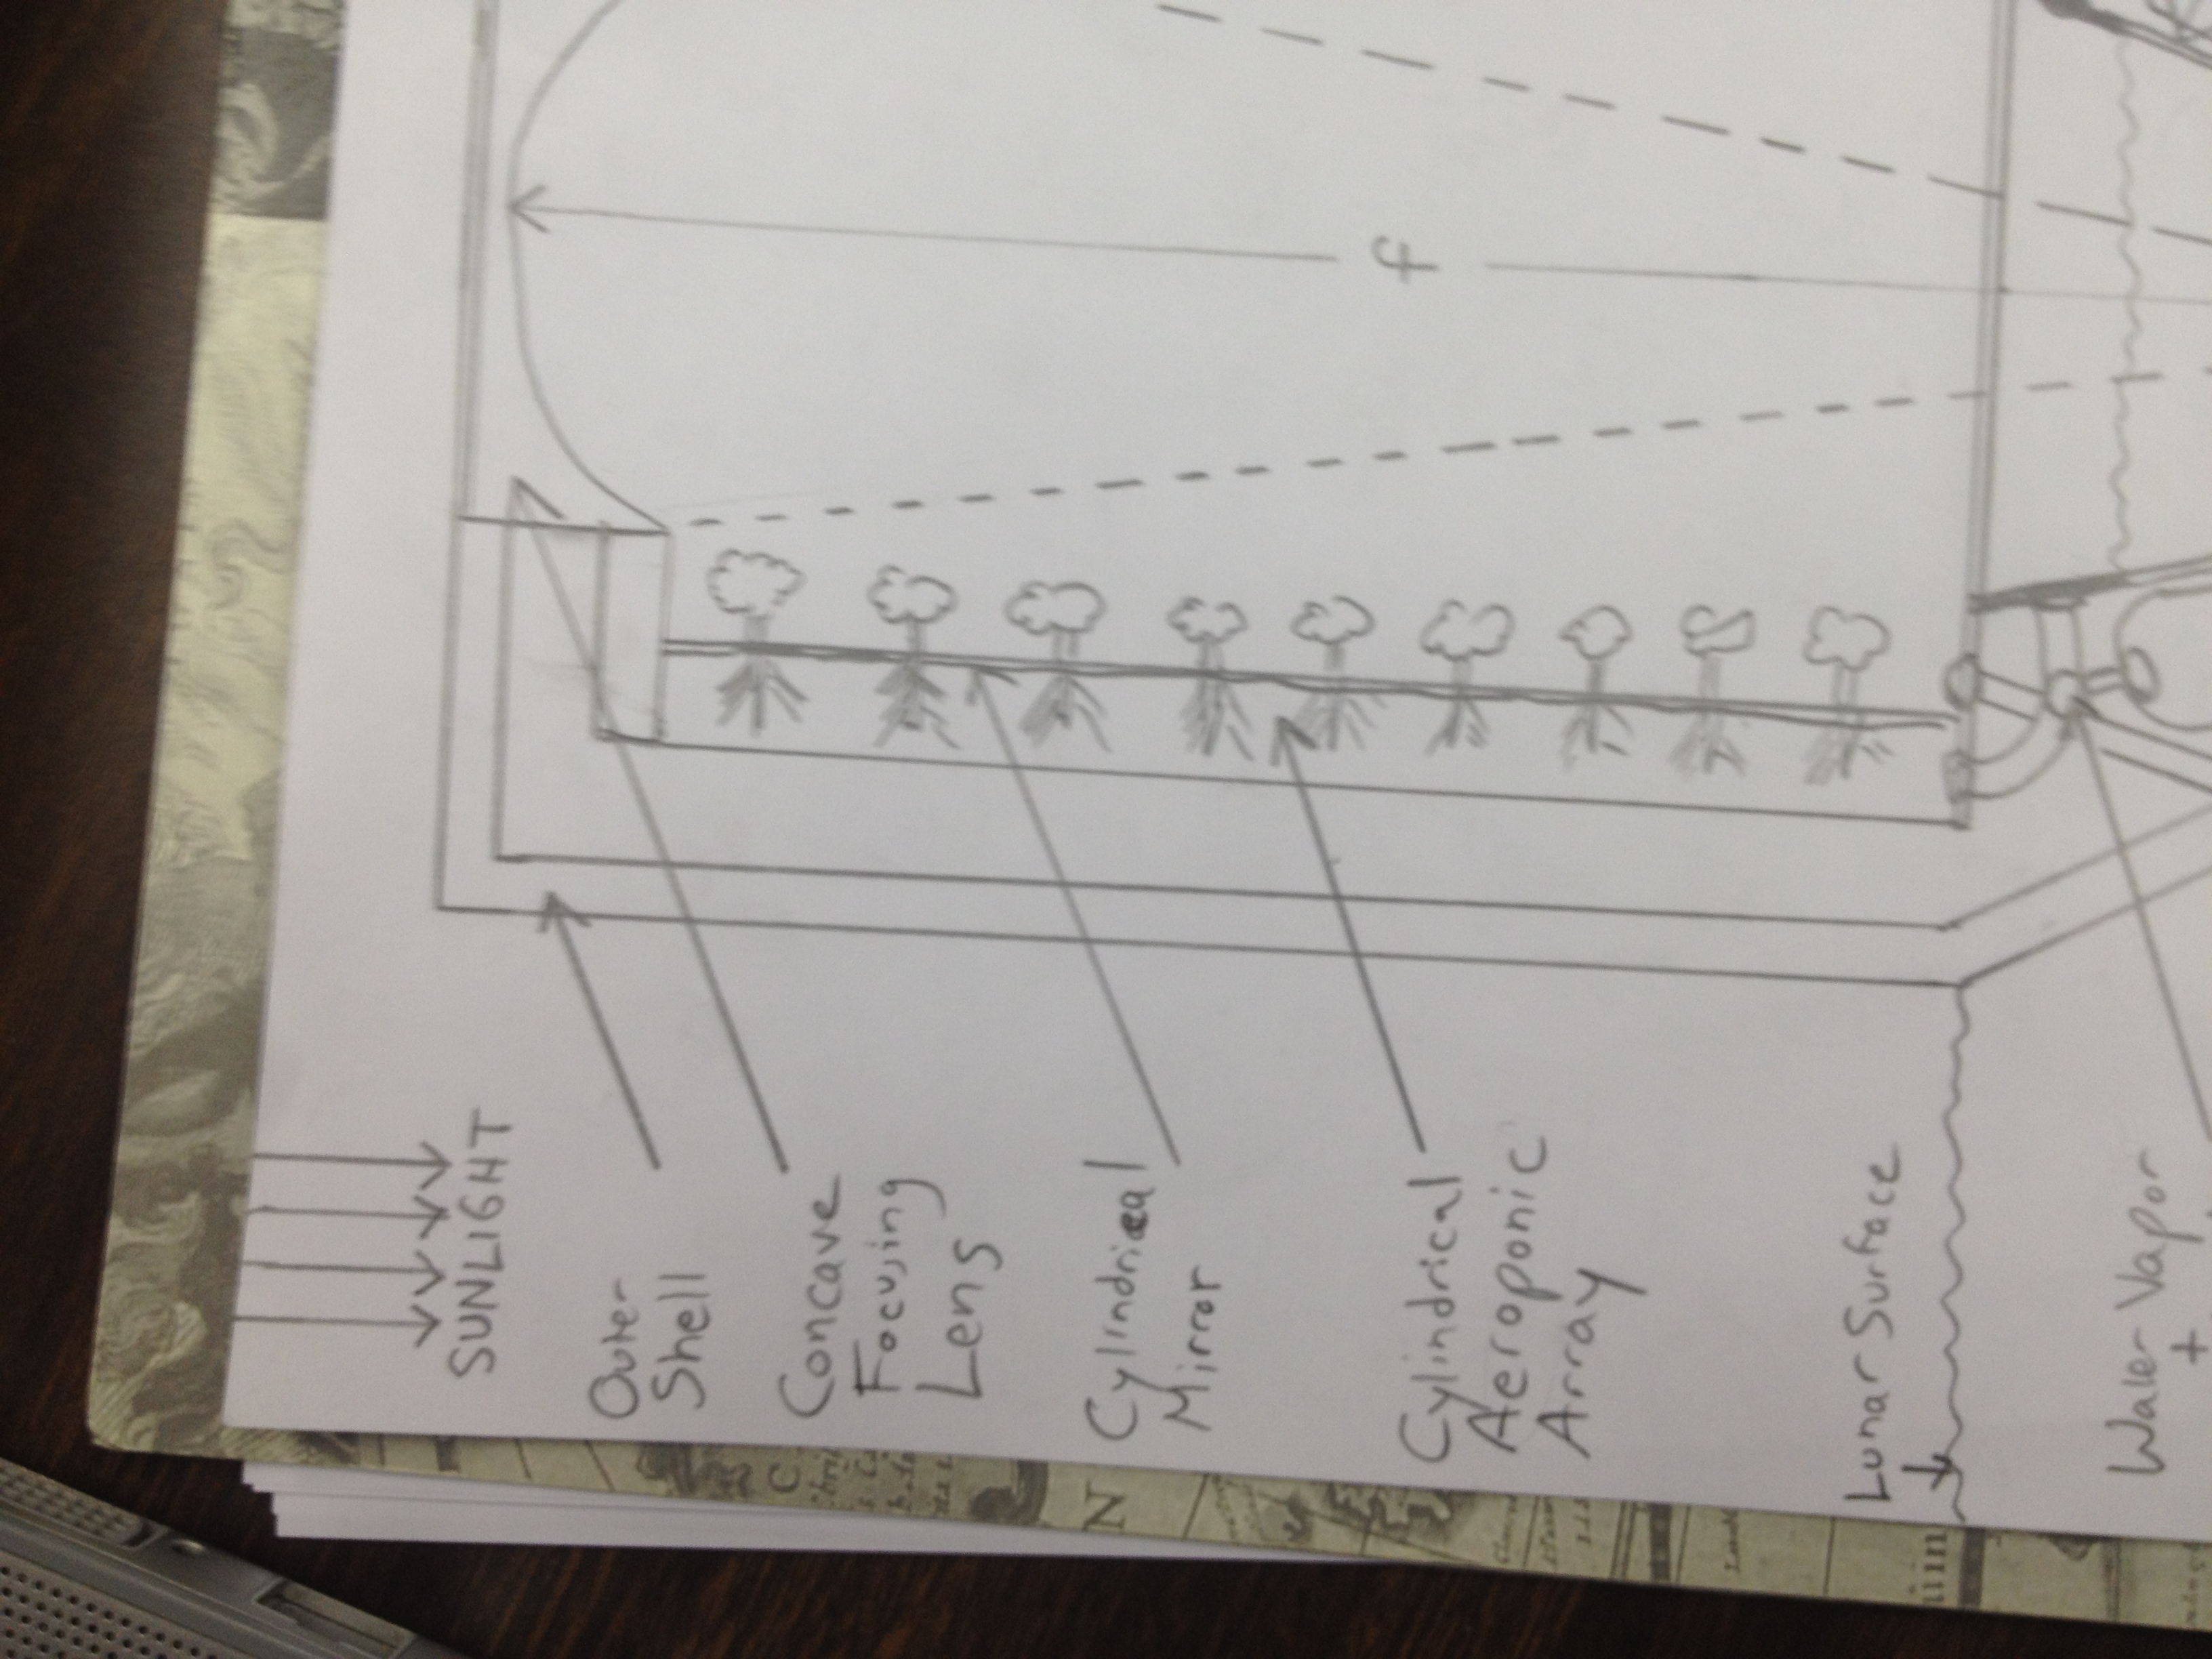 SUNLIGHT
Outer
Shell
Concave
Focusing
Lens
Cylindrical
Mirror
Cylindrical
Aeroponic
Array
Lunar Surface
Water Vapor
+
f
N
C